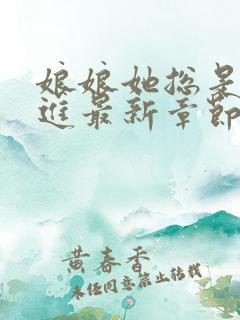 娘娘她总是
进最新章节
黄春香
未经同意禁止转载